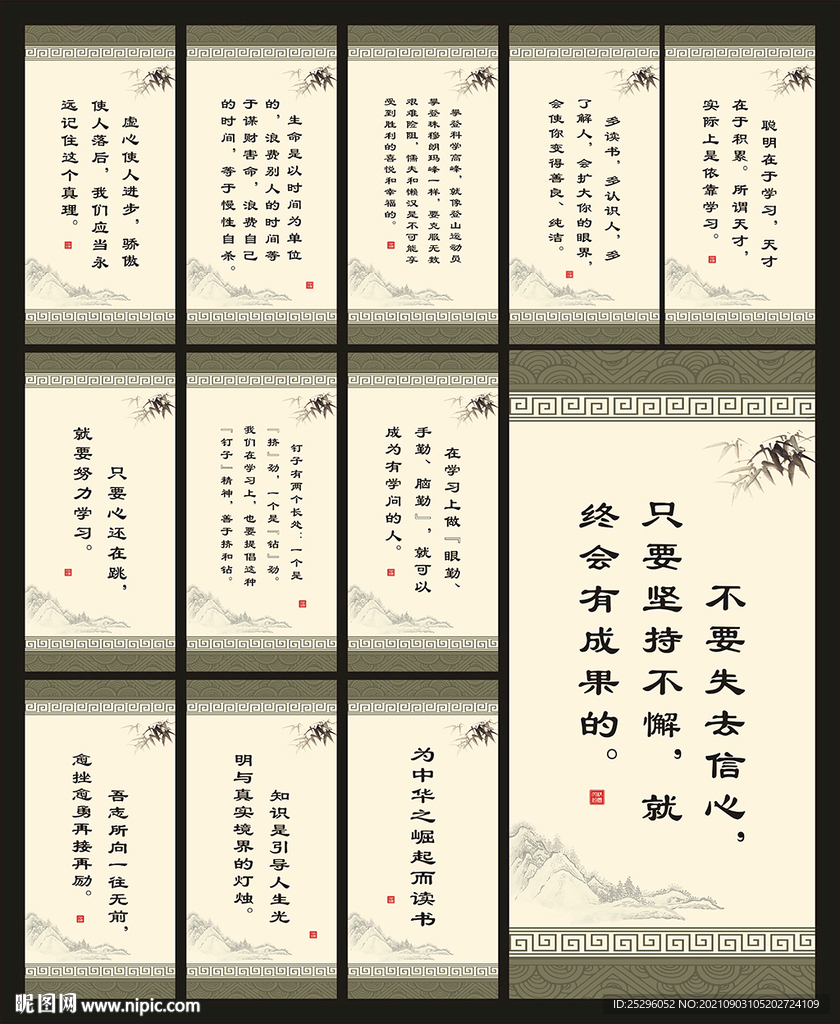 虚心使人进步，骄傲
使人落后，我们应当永
远记住这个真理。
生命是以时间为单位
的，浪费别人的时间等
于谋财害命，浪费自己
的时间，等于慢性自杀。
攀登科学高峰，就像登山运动员
攀登珠穆朗玛峰一样，要克服无数
艰难险阻，懦夫和懒汉是不可能享
受到胜利的喜悦和幸福的。
多读书，多认识人，多
了解人，会扩大你的眼界，
会使你变得善良、纯洁。
聪明在于学习，天才
在于积累。所谓天才，
实际上是依靠学习。
只要心还在跳，
就要努力学习。
钉子有两个长处：一个是
『挤』劲，一个是『钻』劲。
我们在学习上，也要提倡这种
『钉子』精神，善于挤和钻。
在学习上做『眼勤、
手勤、脑勤』，就可以
成为有学问的人。
不要失去信心，
只要坚持不懈，就
终会有成果的。
吾志所向一往无前，
愈挫愈勇再接再励。
知识是引导人生光
明与真实境界的灯烛。
为中华之崛起而读书
昵图网 www.nipic.com
ID:25296052 NO:20210903105202724109